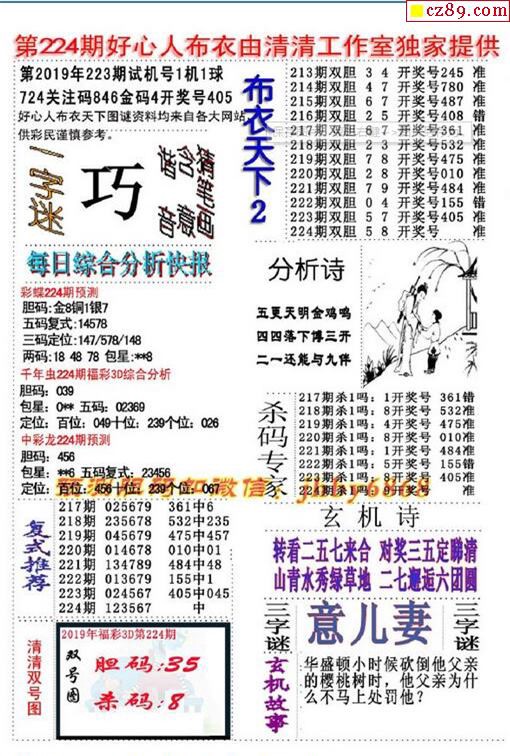 cz89.com
第224期好心人布衣由清清工作室独家提供
第2019年223期试机号1机1球
724关注码846金码4开奖号405
好心人布衣天下图谜资料均来自各大网站,
供彩民谨慎参考。
一字迷
巧
猜笔画
含意
谐音
布衣天下2
213期双胆 3 4 开奖号245 准
214期双胆 4 7 开奖号780 准
215期双胆 6 7 开奖号487 准
216期双胆 2 5 开奖号408 错
217期双胆 6 7 开奖号361 准
218期双胆 2 3 开奖号532 准
219期双胆 7 8 开奖号475 准
220期双胆 2 8 开奖号010 错
221期双胆 7 9 开奖号484 准
222期双胆 0 4 开奖号155 错
223期双胆 5 7 开奖号405 准
224期双胆 5 8 开奖号 准
每日综合分析快报
彩蝶224期预测
胆码:金8铜1银7
五码复式:14578
三码定位:147/578/148
两码:18 48 78 包星:**8
千年虫224期福彩3D综合分析
胆码:039
包星:0** 五码:02369
定位:百位:049十位:239个位:026
中彩龙224期预测
胆码:456
包星:**6 五码复式:23456
定位:百位:456十位:239个位:067
分析诗
五更天明金鸡鸣
四四落下博三开
二一还能与九伴
杀码专家
217期杀1吗:1开奖号 361错
218期杀1吗:8开奖号 532准
219期杀1吗:4开奖号 475准
220期杀1吗:8开奖号 010准
221期杀1吗:1开奖号 484准
222期杀1吗:5开奖号 155错
223期杀1吗:8开奖号 405准
224期杀1吗:9开奖号 准
复式推荐
217期 025679 361中6
218期 235678 532中235
219期 045679 475中457
220期 014678 010中01
221期 134789 484中48
222期 013679 155中1
223期 024567 405中045
224期 123567 中
玄机诗
转看二五七来合 对奖三五定睇清
山青水秀绿草地 二七邂逅六团圆
三字谜
意儿妻
三字谜
清清双号图
2019年福彩3D第224期
双号图
胆码:35
杀码:8
玄机故事
华盛顿小时候砍倒他父亲
的樱桃树时,他父亲为什
么不马上处罚他?